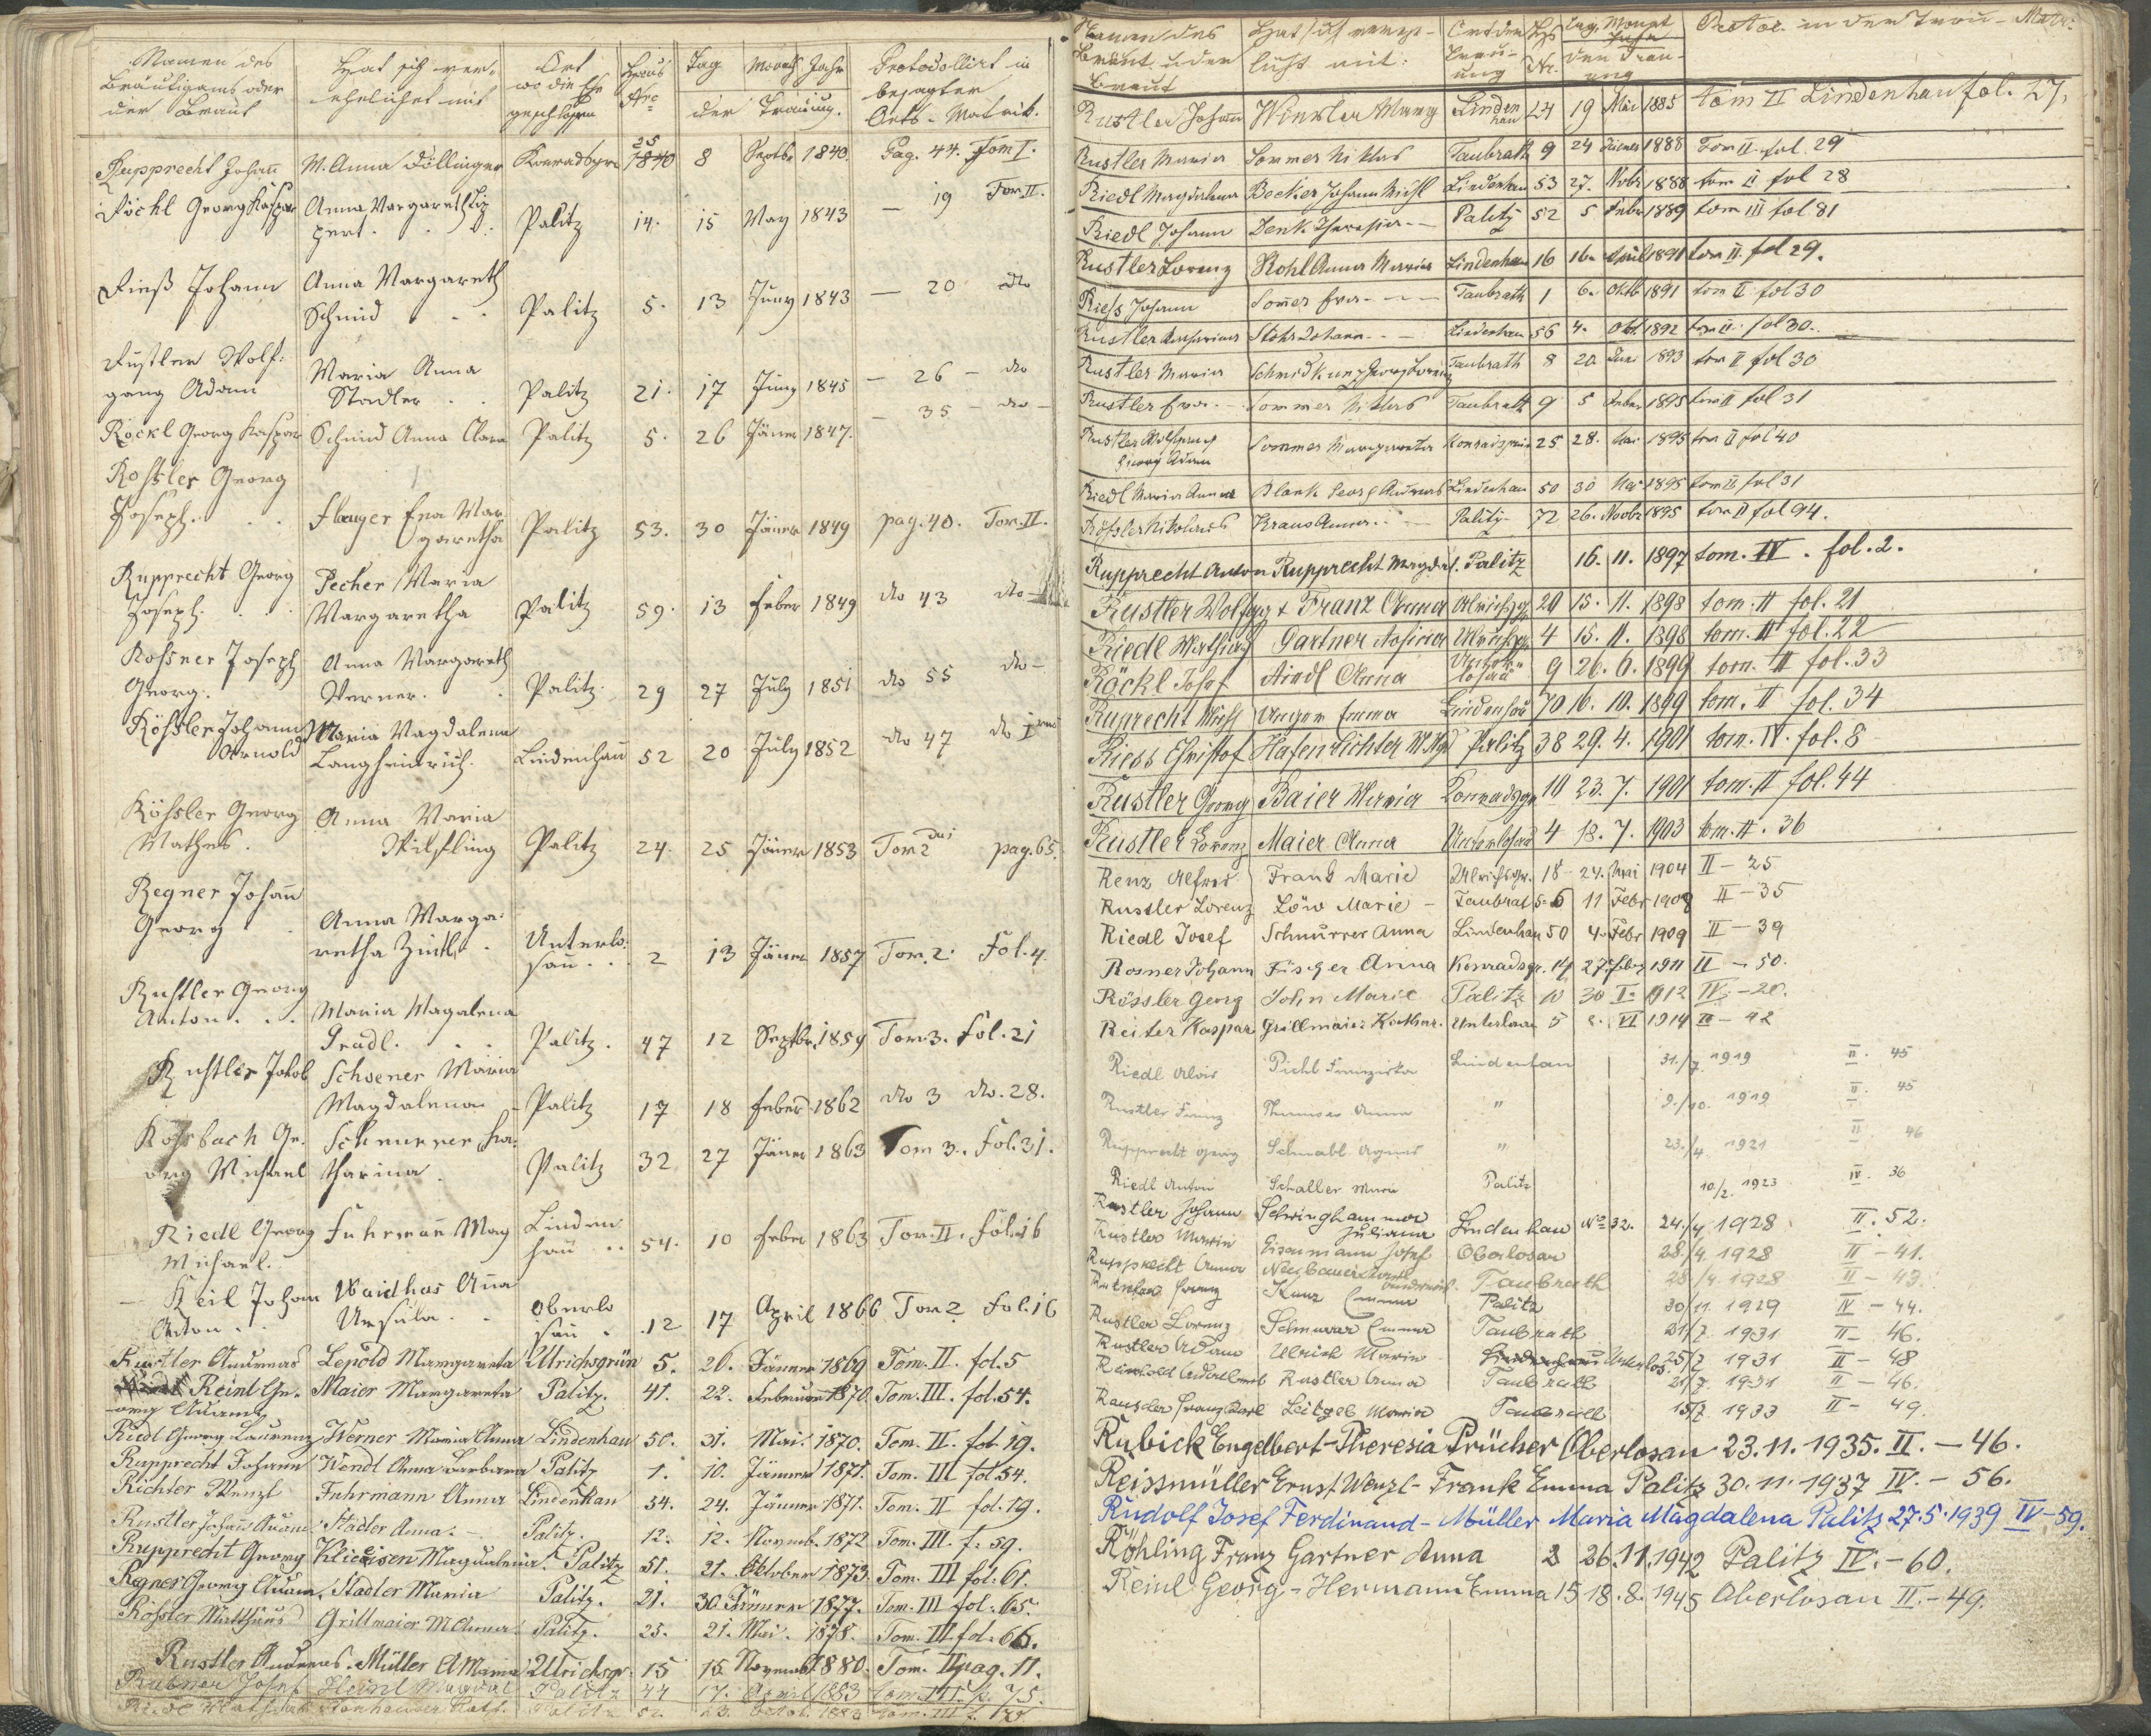 Namen des
Bräutigams oder
der Braut
Hat sich ver-
ehelichet mit
Ort
wo die Ehe
geschlossen
Haus
Nro
Tag Monath Jahr
der Trauung.
Protocollirt in
besagter
Orts-Matrik.
Rupprecht Johann M. Anna Döllinger Konradsgrü 25 1840 8 Septbr 1840. Pag. 44. Tom I.
Röckl Georg Kaspar Anna Margareth Lip
pert. Palitz 14. 15 May 1843 — 19 Tom II.
Rieß Johann Anna Margareth
Schmid Palitz 5. 13 Juny 1843 — 20 do
Rustler Wolf-
gang Adam Maria Anna
Stadler Palitz 21. 17 Juny 1845 — 26 — do
Röckl Georg Kaspar Schmid Anna Clara Palitz 5. 26 Jäner 1847. — 35 — do —
Rossler Georg
Joseph. Flauger Eva Mar
garetha Palitz 53. 30 Jäner 1849 pag. 40. Tom. II.
Rupprecht Georg
Joseph. Pecher Maria
Margaretha Palitz 59. 13 Feber 1849 do 43 do
Rossner Joseph
Georg. Anna Margareth
Werner. Palitz. 29 27 July 1851 do 55 do —
Rössler Johann
Arnold Maria Magdalena
Langheinrich. Lindenhau 52 20 July 1852 do 47 do I
Rössler Georg
Mathes. Anna Maria
Wilfling Palitz 24. 25 Jäner 1853 Tom 2 pag. 65.
Regner Johann
Georg Anna Marga-
retha Zintl. Unterlo-
sau 2 13 Jäner 1857 Tom. 2. Fol. 4.
Rustler Georg
Anton. Maria Magalena
Gradl. Palitz. 47 12 Septbr. 1859 Tom. 3. Fol. 21
Rustler Jakob Schoener Maria
Magdalena Palitz 17 18 Feber 1862 do 3 do. 28.
Rohrbach Ge-
org Michael Schnurrer Ka-
tharina. Palitz 32 27 Jäner 1863 Tom 3. Fol. 31.
Riedl Georg
Michael. Fuhrmann Mag Linden
hau 54. 10 Feber 1863 Tom. II. Fol. 16
Keil Johann
Anton Waidhas Anna
Ursula Oberlo
sau 12 17 April 1866 Tom 2 Fol. 16
Rustler Andreas Lepold Margareta Ulrichsgrün 5. 26. Jänner 1869 Tom. II. fol. 5
Reinl Ge-
org Adam Maier Margareta Palitz. 41. 22. Februar 1870. Tom. III. fol. 54.
Riedl Georg Laurenz Werner Maria Anna Lindenhau 50. 31. Mai. 1870. Tom. II. fol. 19.
Rupprecht Johann Wendl Anna Barbara Palitz 1. 10. Jänner 1871. Tom. III fol. 54.
Richter Wenzl Fuhrmann Anna Lindenhau 54. 24. Jänner 1871. Tom. II fol. 19.
Rustler Johann Adam Stadler Anna. Palitz. 12. 12. Novemb. 1872 Tom. III. f. 59.
Rupprecht Georg Klieeisen Magdalena. Palitz 51. 21. Oktober 1873. Tom. III fol. 61.
Regner Georg Adam. Stadler Maria Palitz. 21. 30. Jänner 1877. Tom. III fol. 65.
Rössler Matthäus Grillmaier M Anna Palitz. 23. 21. Mai. 1878. Tom. III fol. 66.
Rustler Andreas. Müller A Maria Ulrichsgr. 15 15 Novemb 1880. Tom. II pag. 11.
Rubner Josef Heinl Magdal Palitz 44 17. April 1883 tom. III. p. 75.
Palitz 23. Octob. 1883 tom. III
Namen des
Bräut. oder
Braut
Hat sich vereh-
licht mit:
Ort der
Trau-
ung
Hs
Nr.
Tag, Monat
Jahr
der Trau-
ung
Protok. in der Trau-Matr.
Rustler Johann Winkler Marg Linden
hau 24 19 Mai 1885 tom II Lindenhau fol. 27.
Rustler Maria Sommer Niklas Taubrath 9 24 Jänner 1888 Tom II. fol. 29
Riedl Magdalena Becker Johann Michl Lindenhau 53 27. Novbr 1888 tom II fol 28
Riedl Johann Denk Theresia Palitz 52 5 Feber 1889 tom III fol 81
Rustler Lorenz Kohl Anna Maria Lindenhau 16 16. April 1891 tom II. fol 29.
Riess Johann Sommer Eva Taubrath 1 6. Oktb 1891 tom II fol 30
Rustler Katharina Stöhr Johann Lindenhau 56 4. Okt. 1892 tom II. fol 30.
Rustler Maria Schmidkunz Georg Lorenz Taubrath 8 20 Juni 1893 tom II fol 30
Rustler Eva Sommer Niklas Taubrath 9 5 Feber 1895 tom II fol 31
Rustler Wolfgang
Georg Adam Sommer Margareta Konradsgrün 25 28. Mai 1895 tom II fol 40
Riedl Maria Anna Blank Georg Andreas Lindenhau 50 30 Mai 1895 tom II fol 31
Rössler Nikolaus Kraus Anna Palitz 72 26. Novbr 1895 tom II fol 94.
Rupprecht Anton Rupprecht Magdal. Palitz 16. 11. 1897 tom. IV. fol. 2.
Rustler Wolfgg + Franz Anna Ulrichsgr 29 15. 11. 1898 tom. II fol. 21
Riedl Mathias Gartner Rosina Ulrichsgr 4 15. 11. 1898 tom. II fol. 22
Röckl Josef Riedl Anna Unter-
losau 9 26. 6. 1899 tom. II fol. 33
Ruprecht Mich Unger Emma Lindenhau 70 16. 10. 1899 tom. II fol. 34
Riess Christof Hafenrichter M Mgd Palitz 38 29. 4. 1901 tom. IV. fol. 8
Rustler Georg Baier Maria Konradsgr 10 23. 7. 1901 tom. II fol. 44
Rustler Lorenz Maier Anna Unterlosau 4 18. 7. 1903 tom. II. 36
Renz Alfred Frank Marie Ulrichsgr. 18 24. Mai 1904 II — 25
Rustler Lorenz Löw Marie — Taubrat 5 11 Febr 1908 II — 35
Riedl Josef Schnurrer Anna Lindenhau 50 4. Febr 1909 II — 39
Rosner Johann Fischer Anna Konradsgr. 14 27. Feber 1911 II — 50.
Rössler Georg John Marie Palitz 10 30 I. 1912 IV — 20.
Reiter Kaspar Grillmaier Kathar. Unterlosau 5 2. VI 1914 II — 42
Riedl Alois Pichl Franziska Lindenhau 31./7. 1919 II. 45
Rustler Franz Thumser Anna " 9./10. 1919 II. 45
Rupprecht Georg Schnabl Agnes " 23./4. 1921 II. 46
Riedl Anton Schaller Marie Palitz 10/2. 1923 IV. 36
Rustler Johann Schwinghammer
Juliana Lindenhau No 32. 24./4 1928 II. 52.
Rustler Maria Eisenmann Josef Oberlosau 28./4. 1928 II — 41.
Rupprecht Anna Neubauer Taubrath 28/4. 1928 II — 43.
Franz Kunz Emma Palitz 30/11. 1929 IV — 44.
Rustler Lorenz Schmurrer Emma Taubrath 21/7 1931 II — 46.
Rustler Adam Ulrich Maria Lindenhau Unterlos. 25/7 1931 II — 48
Rustler Anna Taubrath 21/7 1931 II — 46.
Franz Karl Leitgeb Maria Taubrath 15/7 1933 II — 49.
Rubick Engelbert - Theresia Prücher Oberlosau 23. 11. 1935. II. — 46.
Reissmüller Ernst Wenzl - Frank Emma Palitz 30. 11. 1937 IV. — 56.
Rudolf Josef Ferdinand - Müller Maria Magdalena Palitz 27. 5. 1939 IV — 59.
Röhling Franz Gartner Anna 2 26. 11. 1942 Palitz IV. — 60.
Reinl Georg, - Hermann Emma 15 18. 8. 1945 Oberlosau II. — 49.